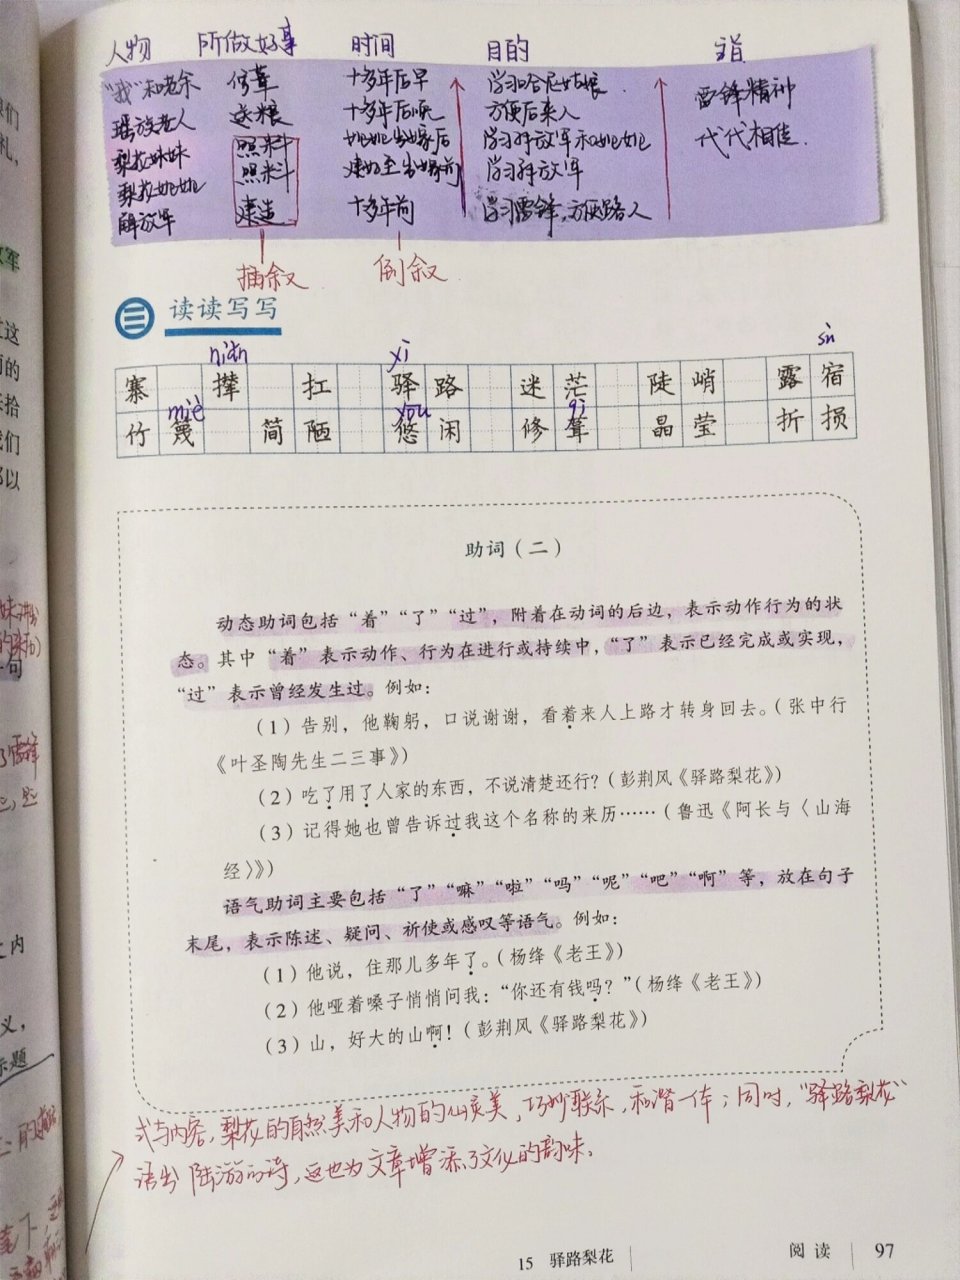 人物 所做好事 时间 目的 主旨
“我”和老余 修葺 十多年后早 学习哈尼姑娘 雷锋精神
瑶族老人 送粮 十多年后晚 方便后来人 代代相传
梨花妹妹 照料 姐姐出嫁后 学习解放军和姐姐
梨花姐姐 照料 建好至出嫁前 学习解放军
解放军 建造 十多年前 学习雷锋,方便路人
插叙 倒叙
三 读读写写
niǎn yì sù
寨 撵 扛 驿路 迷茫 陡峭 露宿
miè yōu qì
竹篾 简陋 悠闲 修葺 晶莹 折损
助词(二)
动态助词包括“着”“了”“过”,附着在动词的后边,表示动作行为的状
态。其中“着”表示动作、行为在进行或持续中,“了”表示已经完成或实现,
“过”表示曾经发生过。例如:
(1)告别,他鞠躬,口说谢谢,看着来人上路才转身回去。(张中行
《叶圣陶先生二三事》)
(2)吃了用了人家的东西,不说清楚还行?(彭荆风《驿路梨花》)
(3)记得她也曾告诉过我这个名称的来历……(鲁迅《阿长与〈山海
经〉》)
语气助词主要包括“了”“嘛”“啦”“吗”“呢”“吧”“啊”等,放在句子
末尾,表示陈述、疑问、祈使或感叹等语气。例如:
(1)他说,住那儿多年了。(杨绛《老王》)
(2)他哑着嗓子悄悄问我:“你还有钱吗?”(杨绛《老王》)
(3)山,好大的山啊!(彭荆风《驿路梨花》)
式与内容,梨花的自然美和人物的心灵美,巧妙联系,和谐一体;同时,“驿路梨花”
语出陆游的诗,这也为文章增添了文化的韵味。
15 驿路梨花 阅读 97